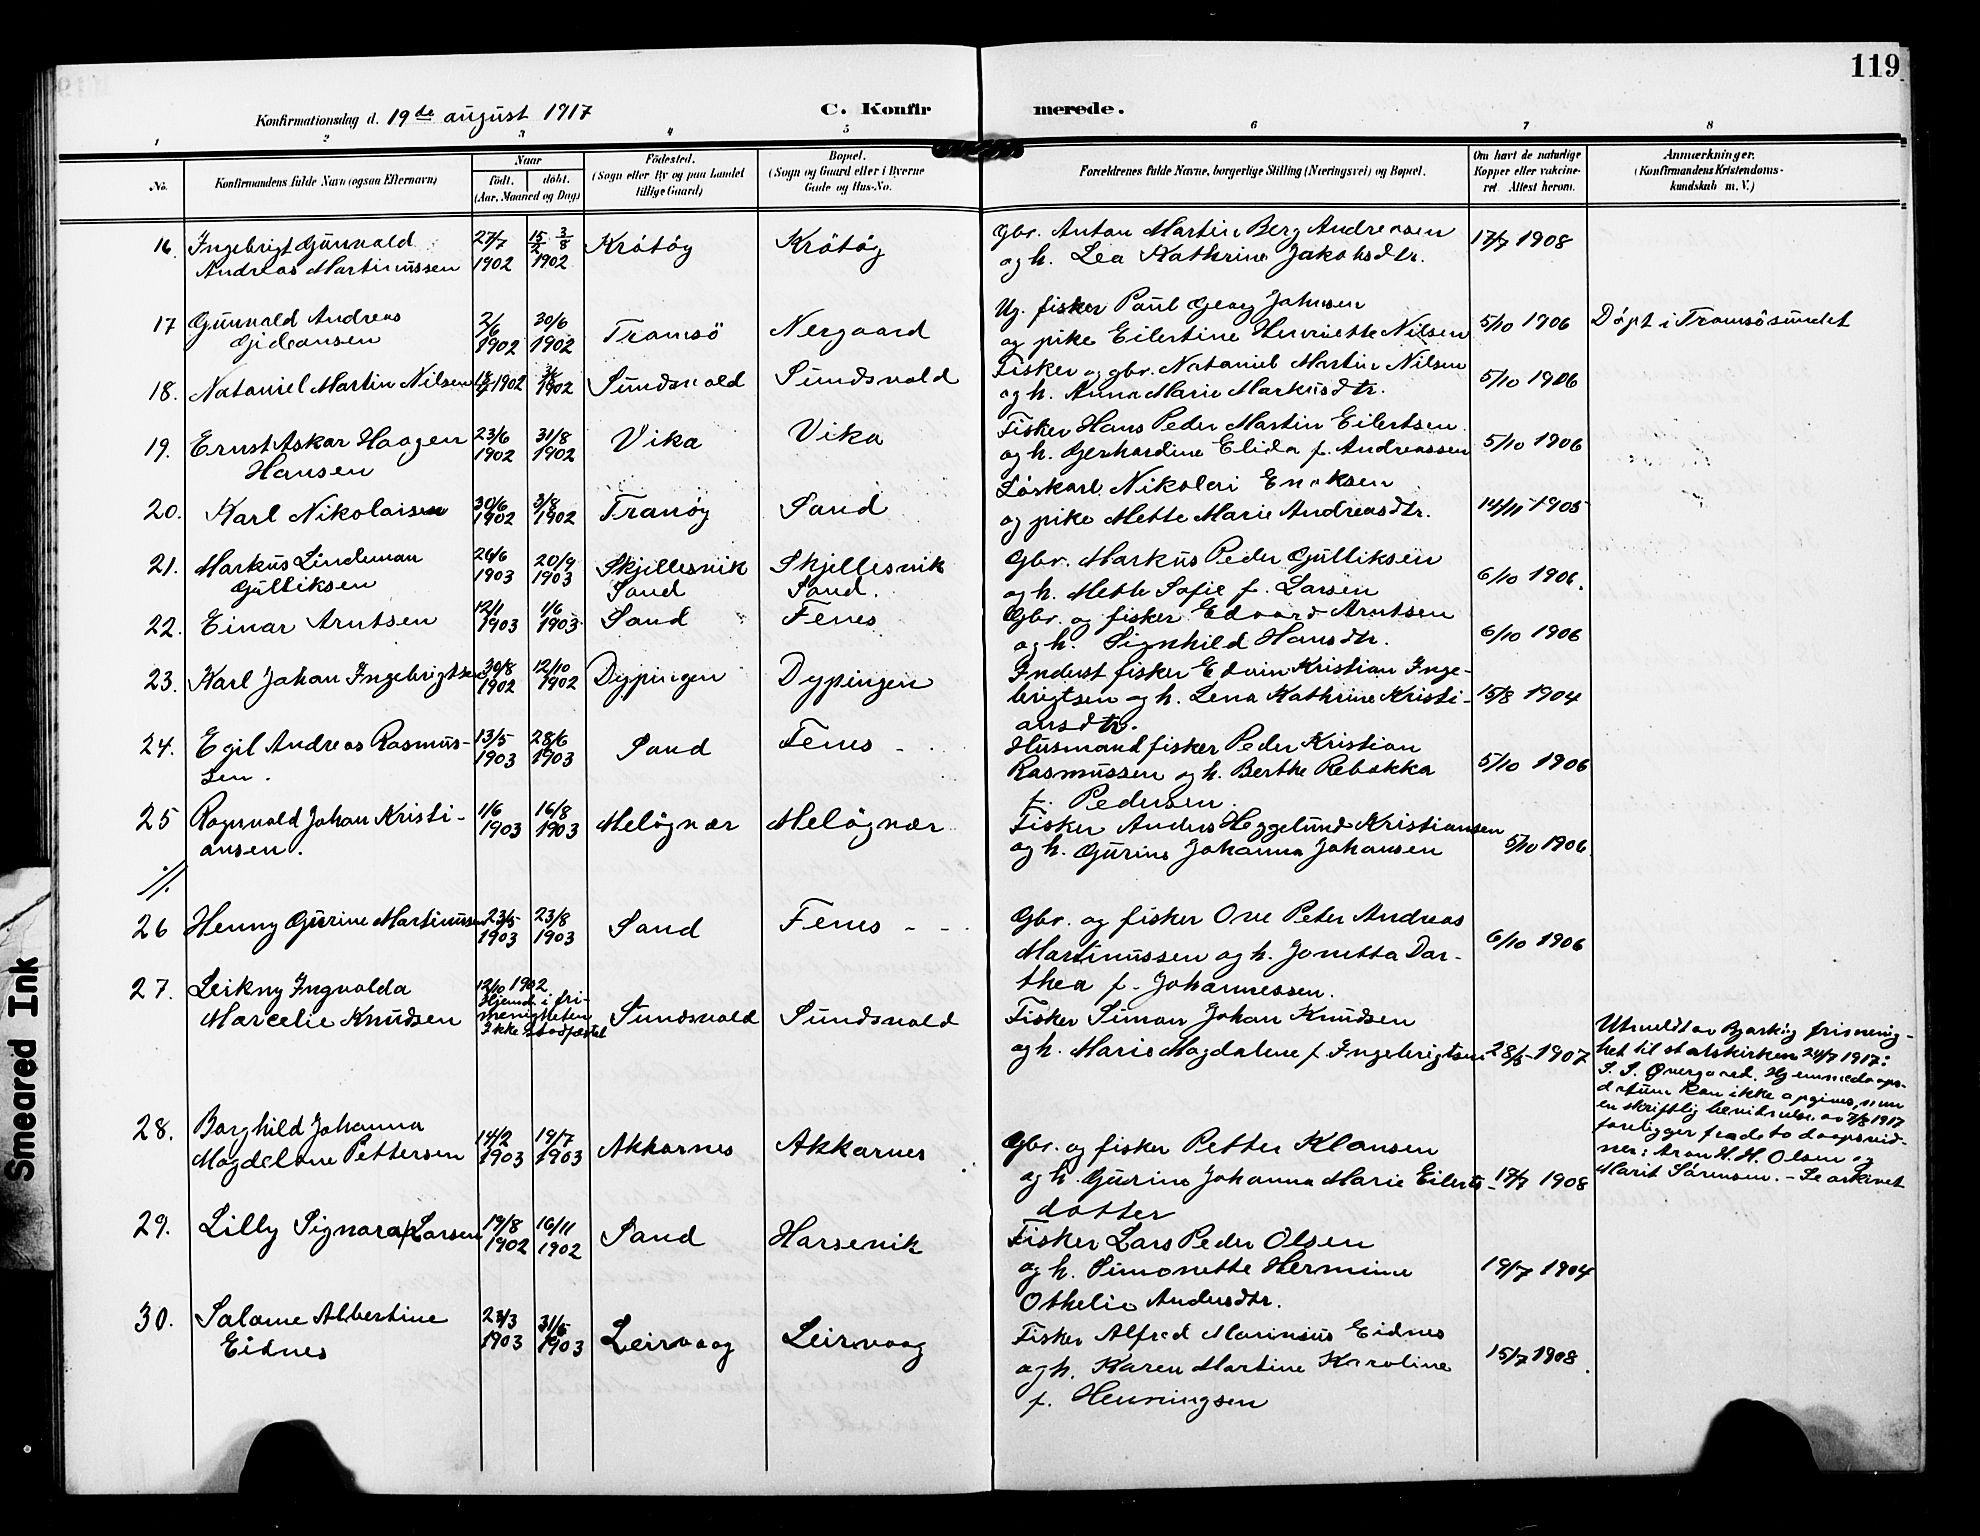 119
Konfirmationsdag d. 19de august 1917
C. Konfirmerede.
1 2 3 4 5 6 7 8
No.
Konfirmandens fulde Navn (ogsaa Efternavn)
Naar
födt. döbt.
(Aar, Maaned og Dag)
Födested.
(Sogn eller By og paa Landet
tillige Gaard)
Bopæl.
(Sogn og Gaard eller i Byerne
Gade og Hus-No.
Forældrenes fulde Navne, borgerlige Stilling (Næringsvei) og Bopæl.
Om havt de naturlige
Kopper eller vakcine-
ret. Attest herom.
Anmærkninger.
(Konfirmandens Kristendoms-
kundskab m. V.)
16. Ingebrigt Gunvald 27/7 15/2 3/8 Krötöy Krötöy Gbr. Anton Martin Berg Andreasen 17/7 1908
Andreas Martinussen 1902 1902 og h. Lea Kathrine Jakobsdtr.
17 Gunvald Andreas 2/6 30/6 Tromsö Nergaard Ug. fisker Paul Georg Johnsen 5/10 1906 Döpt i Tromsösundet
Gideonsen 1902 1902 og pike Eilertine Henriette Nilsen
18. Nataniel Martin Nilsen 1902 1902 Sundsvold Sundsvold Fisker og gbr. Nataniel Martin Nilsen 5/10 1906
og h. Anna Marie Markusdtr.
19. Ernst Askar Haagen 23/6 31/8 Vika Vika Fisker Hans Peder Martin Eilertsen 5/10 1906
Hansen 1902 1902 og h. Gerhardine Elida f. Andreassen
20. Karl Nikolaisen 30/6 3/8 Tranöy Sand Löskarl Nikolai Enoksen 14/11 1905
1902 1902 og pike Mette Marie Andreasdtr.
21. Markus Lindeman 26/6 20/9 Skjellesvik Skjellesvik Gbr. Markus Peder Gulliksen 6/10 1906.
Gulliksen 1903 1903 Sand Sand. og h. Mette Sofie f. Larsen
22. Einar Arntsen 12/1 1/6 Sand Fenes Gbr. og fisker Edvard Arntsen 6/10 1906
1903 1903 og h. Signhild Hansdtr.
23. Karl Johan Ingebrigtsen 30/8 12/10 Dypingen Dypingen Inderst fisker Edvin Kristian Inge-
1902 1902 brigtsen og h. Lena Kathrine Kristi- 15/8 1904
ansdtr.
24. Egil Andreas Rasmus- 13/5 28/6 Sand Fenes - Husmand fisker Peder Kristian 5/10 1906
sen. 1903 1903 Rasmussen og h. Berthe Rebekka
f. Pedersen.
25 Ragnvald Johan Kristi- 1/6 16/8 Melöyvær Melöyvær Fisker Anders Heggelund Kristiansen
ansen. 1903 1903 og h. Gurine Johanna Johansen 5/10 1906.
26 Henny Gurine Martinussen 23/5 23/8 Sand Fenes - - Gbr. og fisker Ove Peter Andreas
1903 1903 Martinussen og h. Jonetta Dor- 6/10 1906
thea f. Johannessen.
27. Leikny Ingvalda 12/10 1902 Sundsvold Sundsvold Fisker Simon Johan Knudsen
Marcelie Knudsen Hjemd. i fri-
menigheten
Ikke stadfæstet
og h. Marie Magdalene f. Ingebrigtsen 28/5 1907
Utmeldt av Bjarköy frimenig-
het til statskirken 24/7 1917:
S. S. Övergaard. Hjemmedaaps-
datum kan ikke opgives, men
en skriftlig bevitnelse av 7/8 1917
foreligger fra de to daapsvid-
ner: Aron H. H. Olsen og
Marit Sörensen. - Se arkivet
28. Borghild Johanna 14/2 19/7 Akkarnes Akkarnes Gbr. og fisker Petter Klausen
Magdelone Pettersen 1903 1903 og h. Gurine Johanna Marie Eilerts- 17/7 1908
dotter
29. Lilly Signora Larsen 19/8 16/11 Sand Harsevik Fisker Lars Peder Olsen
1902 1902 og h. Simonette Hermine 19/7 1904
Othelie Andersdtr.
30. Salome Albertine 23/3 31/5 Leirvaag Leirvaag Fisker Alfred Marinius Eidnes
Eidnes 1903 1903 og h. Karen Martine Karoline 15/7 1908.
f. Henningsen
Smeared Ink